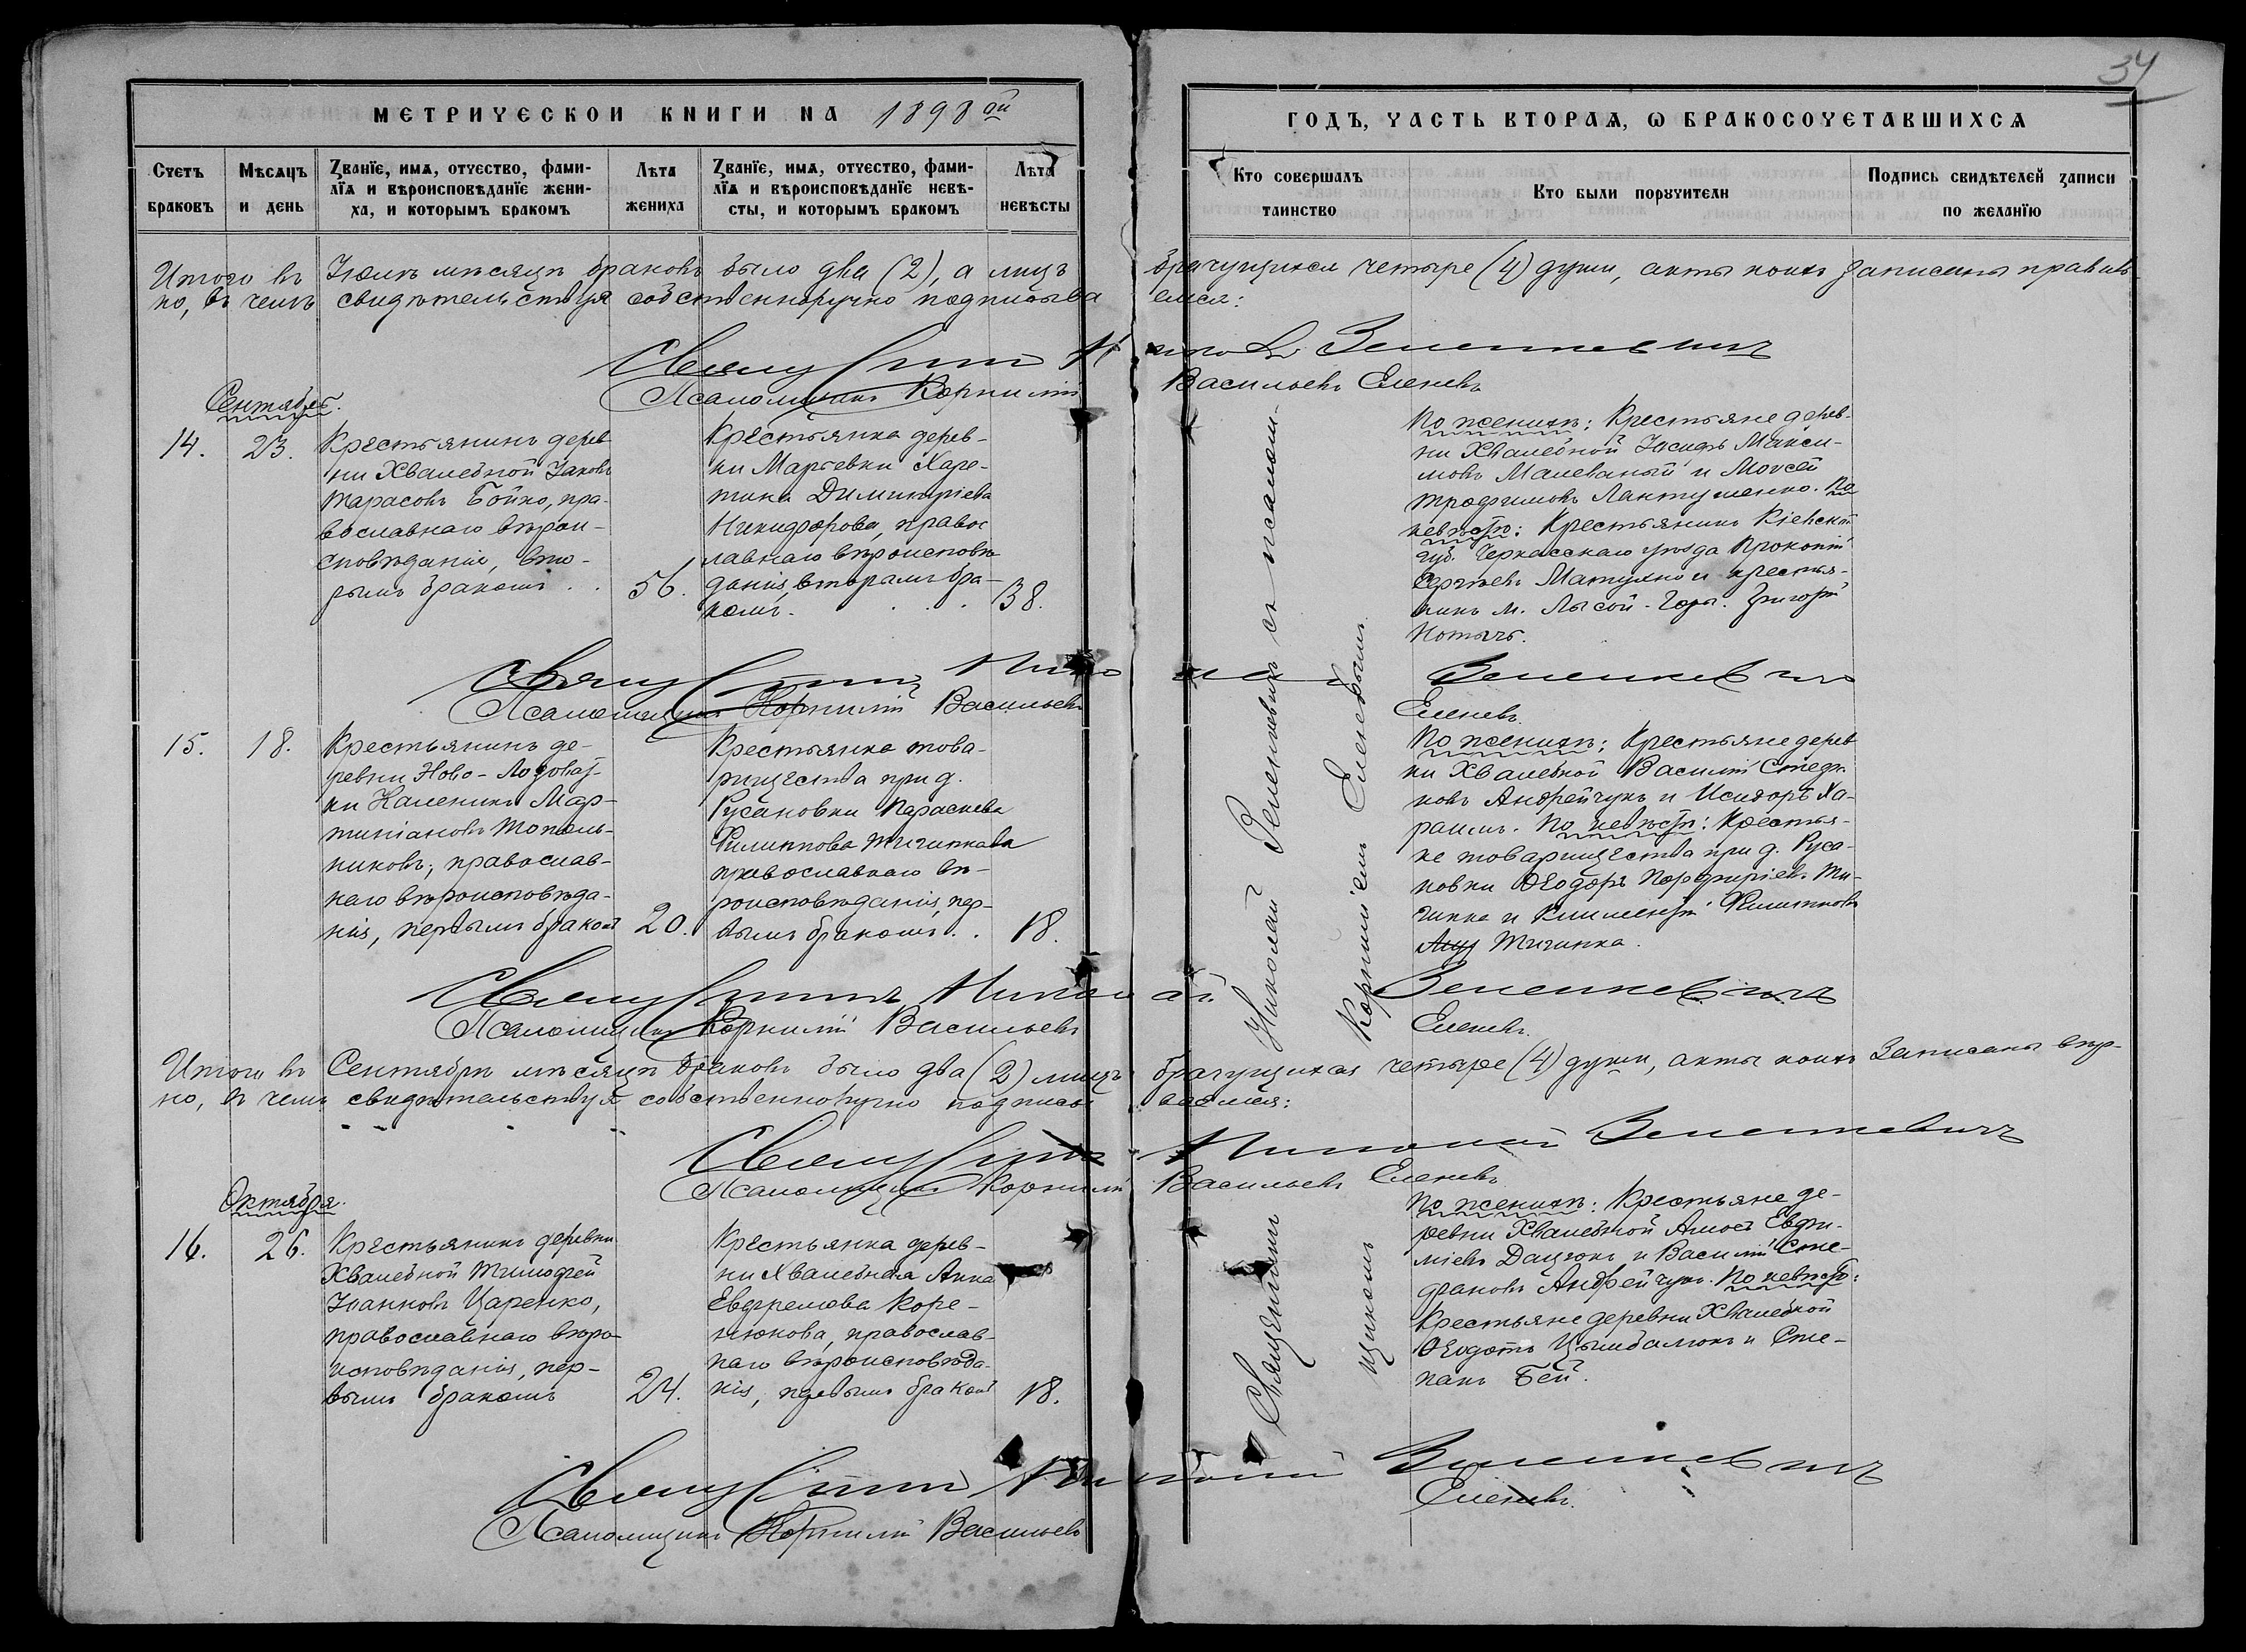 34
МЕТРИЧЕСКОЙ КНИГИ НА 1898 ой
ГОДЪ, ЧАСТЬ ВТОРАѦ, Ѡ БРАКОСОЧЕТАВШИХСѦ
Счетъ браковъ
Мѣсѧцъ и день
Званїе, имѧ, отчество, фами-
лїѧ и вѣроисповѣданїе жени-
ха, и которымъ бракомъ
Лѣта жениха
Званїе, имѧ, отчество, фами-
лїѧ и вѣроисповѣданїе невѣ-
сты, и которымъ бракомъ
Лѣта невѣсты
Кто совершалъ таинство
Кто были поручители
Подпись свидѣтелей записи по желанїю
Итого въ Іюлѣ мѣсяцѣ браковъ было два (2), а лицъ брачущихся четыре (4) души, акты коихъ записаны правиль
но, въ чемъ свидѣтельствуя собственноручно подписыва емся:
Священникъ Николай Зеленкевичъ
Псаломщикъ Корнилій Васильевъ Еленевъ
Сентября.
14.
23.
Крестьянинъ дерев
ни Хвалебной Іаковъ
Тарасовъ Бойко, пра-
вославнаго вѣрои-
сповѣданія, вто-
рымъ бракомъ . .
56.
Крестьянка дерев-
ни Марьевки Харе-
тина Димитріева
Никифорова, правос
лавнаго вѣроисповѣ
данія, вторымъ бра-
комъ. . . .
38.
По женихѣ: Крестьяне дерев-
ни Хвалебной Іосифъ Макси-
мовъ Малеваный и Моѵсей
Трофимовъ Лантушенко. По
невѣстѣ: Крестьянинъ Кіевской
губ. Черкасскаго уѣзда Прокопій
Сергѣевъ Матушко и крестья-
нинъ м. Лысой-Горы. Григорій
Нотычъ.
Священникъ Николай Зеленкевичъ
Псаломщикъ Корнилій Васильевъ Еленевъ.
15.
18.
Крестьянинъ де-
ревни Ново-Лозоват-
ки Калиникъ Мар-
тиніановъ Тополь-
никовъ, православ-
наго вѣроисповѣда-
нія, первымъ бракомъ
20.
Крестьянка това-
рищества при д.
Русановки Параскева
Филиппова Тичинкова
православнаго вѣ-
роисповѣданія, пер-
вымъ бракомъ . .
18.
По женихѣ: Крестьяне дерев
ни Хвалебной Василій Стефа-
новъ Андрейчукъ и Исидоръ Ха-
раимъ. По невѣстѣ: Крестья-
не товарищества при д. Руса-
новки Ѳеодоръ Порфиріевъ Ти-
чинка и Климентій Филипповъ
Тичинка.
Священникъ Николай Зеленкевичъ
Псаломщикъ Корнилій Васильевъ Еленевъ.
Итого въ Сентябрѣ мѣсяцѣ браковъ было два (2) лицъ брачущихся четыре (4) души, акты коихъ записаны вѣр-
но, въ чемъ свидѣтельствуя собственноручно подписы ваемся:
Священникъ Николай Зеленкевичъ
Псаломщикъ Корнилій Васильевъ Еленевъ
Октября.
16.
26.
Крестьянинъ деревни
Хвалебной Тимофей
Іоанновъ Царенко,
православнаго вѣро-
исповѣданія, пер-
вымъ бракомъ
24.
Крестьянка дерев-
ни Хвалебная Анна
Евфремова Коре-
нюкова, православ-
наго вѣроисповѣда-
нія, первымъ бракомъ
18.
По женихѣ: Крестьяне де-
ревни Хвалебной Амосъ Евфи-
міевъ Дацюкъ и Василій Сте-
фановъ Андрейчукъ. По невѣстѣ:
Крестьяне деревни Хвалебной
Ѳеодотъ Цымбалюкъ и Сте-
панъ Бей.
Священникъ Николай Зеленкевичъ
Псаломщикъ Корнилій Васильевъ Еленевъ.
Священникъ Николай Зеленкевичъ съ псалом-
щикомъ Корниліемъ Еленевымъ.